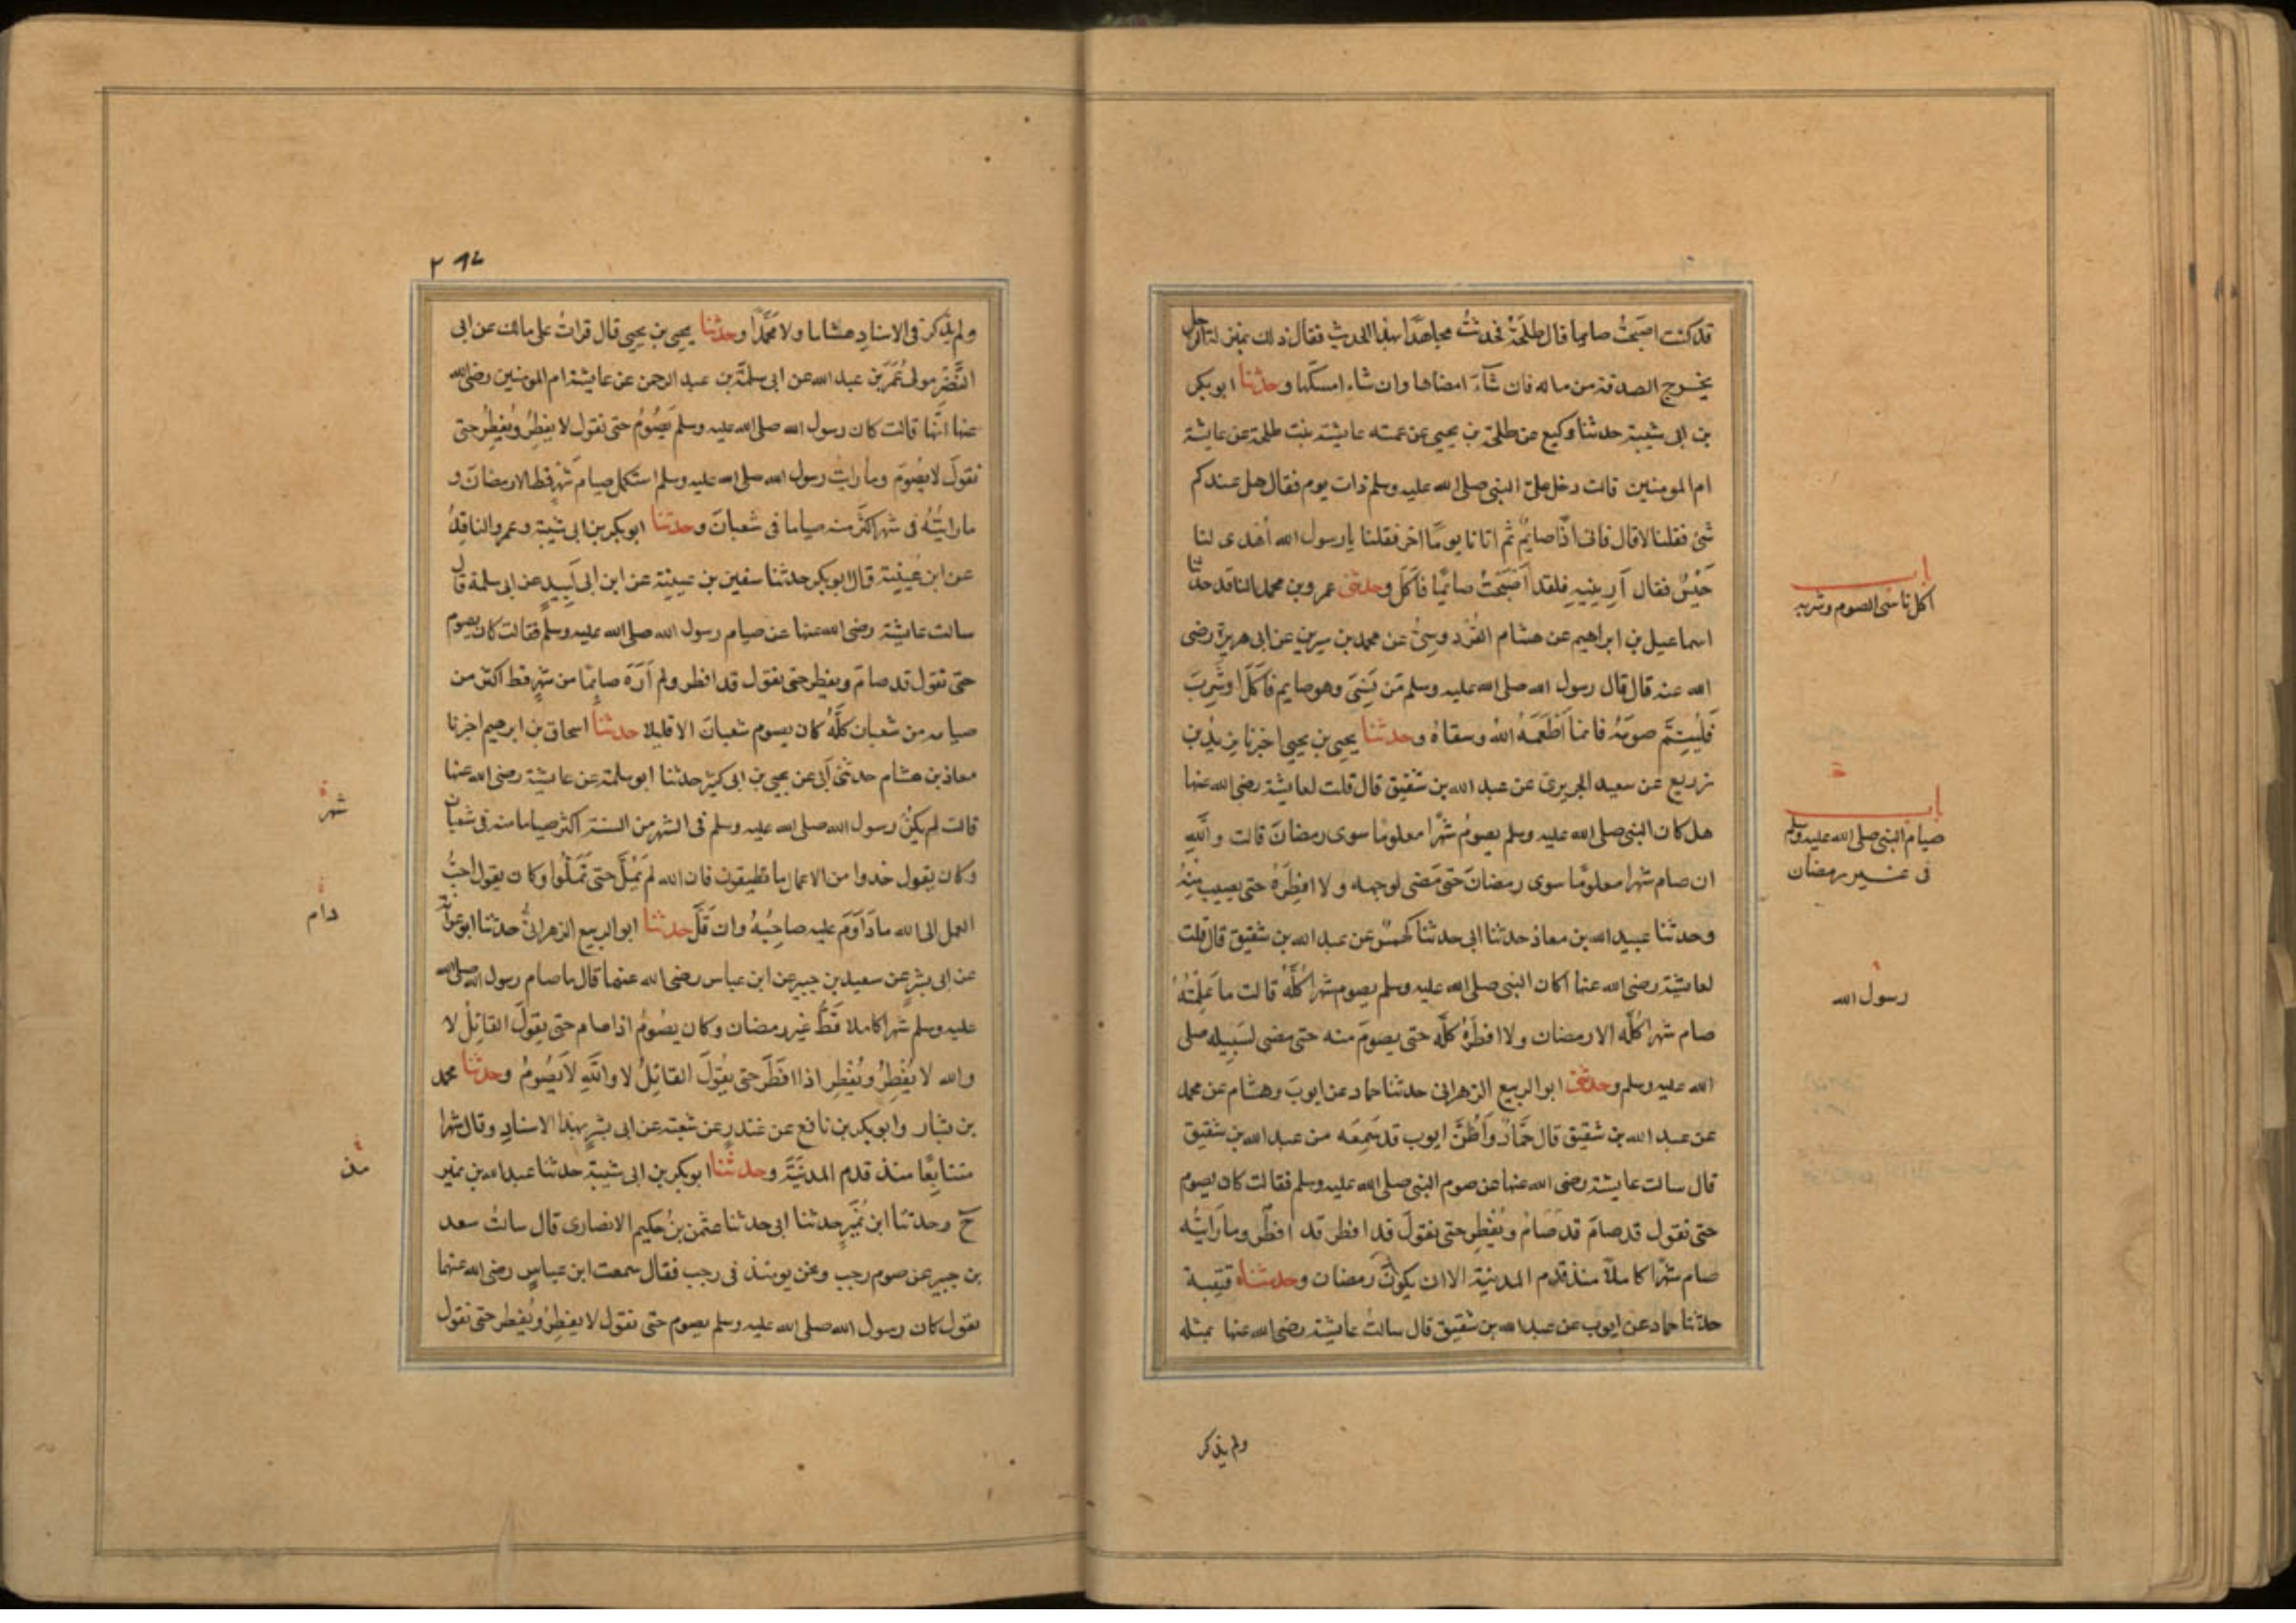 قد كنت اصبحتُ صايما قال طلحَةُ فحدثتُ مجاهدًا بهذا الحديث فقال ذلك بمنزلة الرجل
يخرج الصدقة من ماله فان شآءَ امضاها وان شاء امسكها وحدثنا ابو بكر
بن ابى شيبة حدثنا وكيع عن طلحة بن يحيى عن عمته عايشة بنت طلحة عن عايشة
ام المومنين قالت دخل علىّ النبى صلى الله عليه وسلم ذات يوم فقال هل عندكم
شئ فقلنا لا قال فانى اذًا صايمٌ ثم اتانا يومًا اخر فقلنا يا رسول الله أُهْدِى لنا
حَيْسٌ فقال اَرِينِيهِ فلقد اَصْبَحْتُ صائمًا فَاَكَلَ وحدثنى عمرو بن محمد الناقد حدثنا
اسماعيل بن ابراهيم عن هشام القُرْدوسِىّ عن محمد بن سيرين عن ابى هريرة رضى
الله عنه قال قال رسول الله صلى الله عليه وسلم مَن نَسِىَ وهو صايم فَاَكَلَ اوشَرِبَ
فَلْيُتِمَّ صومَهُ فانما اَطْعَمَهُ اللهُ وسقاهُ وحدثنا يحيى بن يحيى اخبرنا يزيد بن
زريع عن سعيد الجريرى عن عبد الله بن شقيق قال قلت لعايشة رضى الله عنها
هل كان النبى صلى الله عليه وسلم يصومُ شهرًا معلومًا سوى رمضانَ قالت واللهِ
ان صام شهرا معلومًا سوى رمضانَ حتى مَضى لوجهه ولا افطَرَهُ حتى يصيب مِنْهُ
وحدثنا عبيد الله بن معاذ حدثنا ابى حدثنا كهمسٌ عن عبد الله بن شقيق قال قلت
لعايشة رضى الله عنها اكان النبى صلى الله عليه وسلم يصوم شهرا كُلَّهُ قالت ما عَلِمْتُهُ
صام شهرا كُلَّه الا رمضان ولا افطَرَهُ كلَّه حتى يصومَ منه حتى مضى لسَبِيله صلى
الله عليه وسلم وحدثنى ابو الربيع الزهرانى حدثنا حماد عن ايوبَ وهشام عن محمد
عن عبد الله بن شقيق قال حَمَّادٌ وَاَظُنَّ ايوب قد سَمِعَه من عبد الله بن شقيق
قال سالت عايشة رضى الله عنها عن صوم النبى صلى الله عليه وسلم فقالت كان يصوم
حتى نقول قد صامَ قد صَامَ ويُفْطِر حتى نقولَ قد افطر قد افطَر وما رَاَيتُه
صام شهْرًا كاملاً منذ قدم المدينة الا ان يكونَ رمضان وحدثناه قتيبة
حدثنا حماد عن ايوب عن عبد الله بن شقيق قال سالتُ عايشة رضى الله عنها بمثله
ولم يذكر
اكل ناسى الصوم وشربه
باب
صيام النبى صلى الله عليه وسلم
فى غير رمضان
رسول الله
ولم يذكر فى الاسنادِ هشاما ولا محَمَّدًا وحدثنا يحيى بن يحيى قال قراتُ على مالك عن ابى
النَّضْرِ مولى عُمَرَ بن عبد الله عن ابى سلمَةَ بن عبد الرحمن عن عايشة ام المومنين رضى الله
عنها انَّها قالت كان رسول الله صلى الله عليه وسلم يَصُومُ حتى نقول لا يفطِرُ ويُفطِرُ حتى
نقولَ لا يصُومَ وما رايت رسول الله صلى الله عليه وسلم استكمل صيامَ شَهْرٍ قط الا رمضانَ و
ما رايْتُهُ فى شهر اكثَرَ منه صياما فى شعبانَ وحدثنا ابو بكر بن ابى شيبة وعمرو الناقِدُ
عن ابن عُيَيْنة قال ابو بكر حدثنا سفين بن عيينة عن ابن ابى لَبِيدٍ عن ابى سلمة قال
سالت عايشة رضى الله عنها عن صيام رسول الله صلى الله عليه وسلم فقالت كان يصوم
حتى نقول قد صامَ ويفطر حتى نقول قد افطر ولم اَرَهُ صايمًا من شهرٍ قط اكثر من
صيامه من شعبان كلَّهُ كان يصوم شعبانَ الا قليلا حدثنا اسحاق بن ابرهيم اخبرنا
معاذ بن هشام حدثنى اَبى عن يحيى بن ابى كثير حدثنا ابو سلمة عن عايشة رضى الله عنها
قالت لم يكنْ رسول الله صلى الله عليه وسلم فى الشهر من السنة اكثر صياما منه فى شعبان
وكان يقول خذوا من الاعمال ما تطيقون فان الله لم يَمَلَّ حتى تَمَلُّوا وكان يقول احبُّ
العمل الى الله ما دَاوَمَ عليه صاحِبُهُ وان قَلَّ حدثنا ابو الربيع الزهرانىُّ حدثنا ابو عوانة
عن ابى بشرٍ عن سعيد بن جبير عن ابن عباس رضى الله عنهما قال ما صام رسول الله صلى الله
عليه وسلم شهرا كاملا قَطُّ غير رمضان وكان يصُومُ اذا صام حتى يقولَ القائِلُ لا
والله لا يُفْطِرُ ويُفْطِر اذا افطَرَ حتى يقُولَ القائِلُ لا واللهِ لا يَصُومُ وحدثنا محمد
بن بشار وابو بكر بن نافع عن غندر عن شعبة عن ابى بشرٍ بهذا الاسنادِ وقال شهرا
متتابِعًا منذ قدم المدينَةَ وحدثنا ابو بكر بن ابى شيبة حدثنا عبد الله بن نمير
ح وحدثنا ابن نُمَيرٍ حدثنا ابى حدثنا عثمن بنُ حكيم الانصارى قال سالتُ سعد
بن جبير عن صوم رجب ونحن يومئذ فى رجب فقال سمعت ابن عباسٍ رضى الله عنهما
يقول كان رسول الله صلى الله عليه وسلم يصوم حتى نقول لا يفطِرُ ويُفطر حتى نقول
شهر
دام